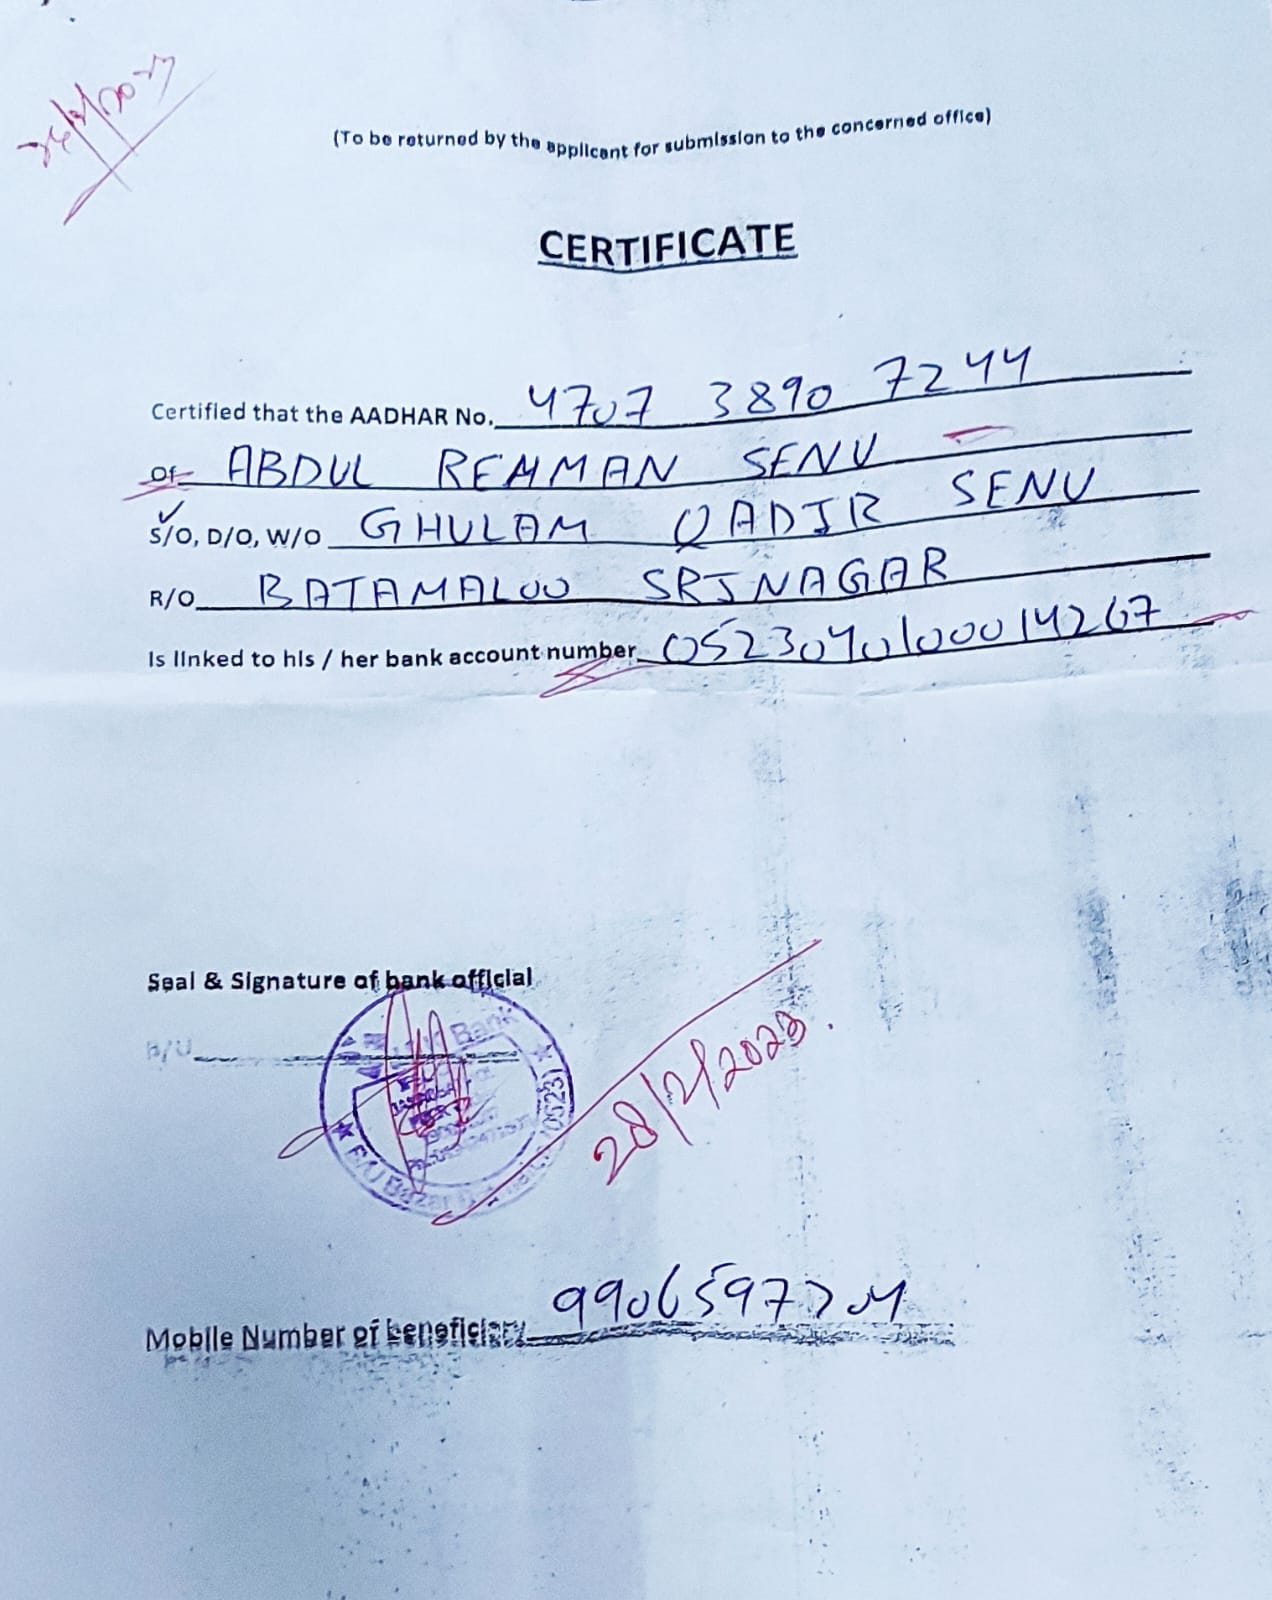 (To be returned by the applicant for submission to the concerned office)
CERTIFICATE
Certified that the AADHAR No. 4707 3890 7244
Of ABDUL REHMAN SENU
S/O, D/O, W/O GHULAM QADIR SENU
R/O BATAMALOO SRINAGAR
Is linked to his / her bank account number 0523040100014267
Seal & Signature of bank official
B/U
Bank
(0523)
28/2/2023.
Mobile Number of beneficiary 9906597704